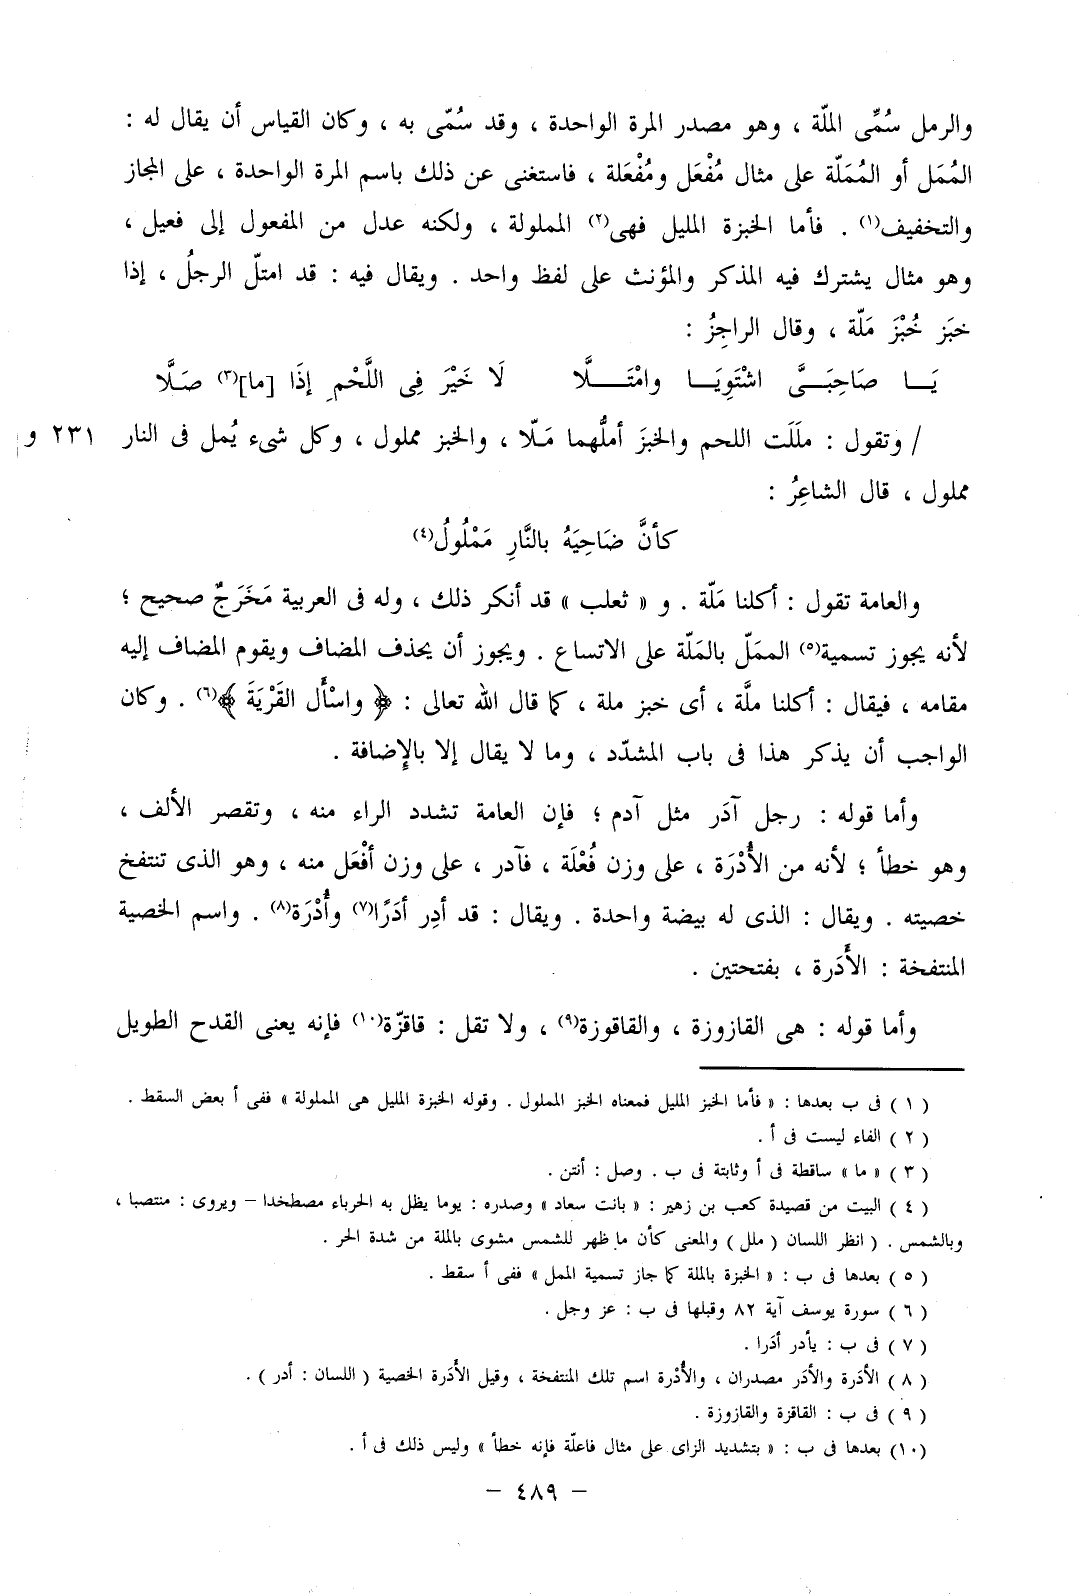 والرمل سُمِّى الملّة ، وهو مصدر المرة الواحدة ، وقد سُمّى به ، وكان القياس أن يقال له :
المُمَل أو المُمَلّة على مثال مُفْعَل ومُفْعَلة ، فاستغنى عن ذلك باسم المرة الواحدة ، على المجاز
والتخفيف(١) . فأما الخبزة المليل فهى(٢) المملولة ، ولكنه عدل من المفعول إلى فعيل ،
وهو مثال يشترك فيه المذكر والمؤنث على لفظ واحد . ويقال فيه : قد امتلّ الرجلُ ، إذا
خبَز خُبْزَ مَلّة ، وقال الراجِزُ :
يَـــا صَاحِبَـــىَّ اشْتَوِيَـــا وامْتَـــلَّا لَا خَيْرَ فِى اللَّحْمِ إذَا [ما](٣) صَـلَّا
/ وتقول : ملَلَت اللحم والخبزَ أملُّهما مَـلّا ، والخبز مملول ، وكل شىء يُمل فى النار ٢٣١ و
مملول ، قال الشاعِرُ :
كأنَّ ضَاحِيَهُ بالنَّارِ مَمْلُولُ(٤)
والعامة تقول : أكلنا مَلّة . و « ثعلب » قد أنكر ذلك ، وله فى العربية مَخَرَجٌ صحيح ؛
لأنه يجوز تسمية(٥) الممَلّ بالمَلّة على الاتساع . ويجوز أن يحذف المضاف ويقوم المضاف إليه
مقامه ، فيقال : أكلنا ملَّة ، أى خبز ملة ، كما قال الله تعالى : ﴿ واسْأَل القَرْيَةَ ﴾(٦) . وكان
الواجب أن يذكر هذا فى باب المشدّد ، وما لا يقال إلا بالإضافة .
وأما قوله : رجل آدَر مثل آدم ؛ فإن العامة تشدد الراء منه ، وتقصر الألف ،
وهو خطأ ؛ لأنه من الأُدْرَة ، على وزن فُعْلَة ، فآدر ، على وزن أفْعَل منه ، وهو الذى تنتفخ
خصيته . ويقال : الذى له بيضة واحدة . ويقال : قد أدِر أدَرًا(٧) وأُدْرَة(٨) . واسم الخصية
المنتفخة : الأَدَرة ، بفتحتين .
وأما قوله : هى القازوزة ، والقاقوزة(٩) ، ولا تقل : قاقزّة(١٠) فإنه يعنى القدح الطويل
( ١ ) فى ب بعدها : « فأما الخبز المليل فمعناه الخبز المملول . وقوله الخبزة المليل هى المملولة » ففى أ بعض السقط .
( ٢ ) الفاء ليست فى أ .
( ٣ ) « ما » ساقطة فى أ وثابتة فى ب . وصل : أنتن .
( ٤ ) البيت من قصيدة كعب بن زهير : « بانت سعاد » وصدره : يوما يظل به الحرباء مصطخدا – ويروى : منتصبا ،
وبالشمس . ( انظر اللسان ( ملل ) والمعنى كأن ما ظهر للشمس مشوى بالملة من شدة الحر .
( ٥ ) بعدها فى ب : « الخبزة بالملة كما جاز تسمية الممل » ففى أ سقط .
( ٦ ) سورة يوسف آية ٨٢ وقبلها فى ب : عز وجل .
( ٧ ) فى ب : يأدر أدَرا .
( ٨ ) الأدَرة والأدَر مصدران ، والأُدْرة اسم تلك المنتفخة ، وقيل الأَدَرة الخصية ( اللسان : أدر ) .
( ٩ ) فى ب : القاقزة والقازوزة .
(١٠) بعدها فى ب : « بتشديد الزاى على مثال فاعلّة فإنه خطأ » وليس ذلك فى أ .
– ٤٨٩ –